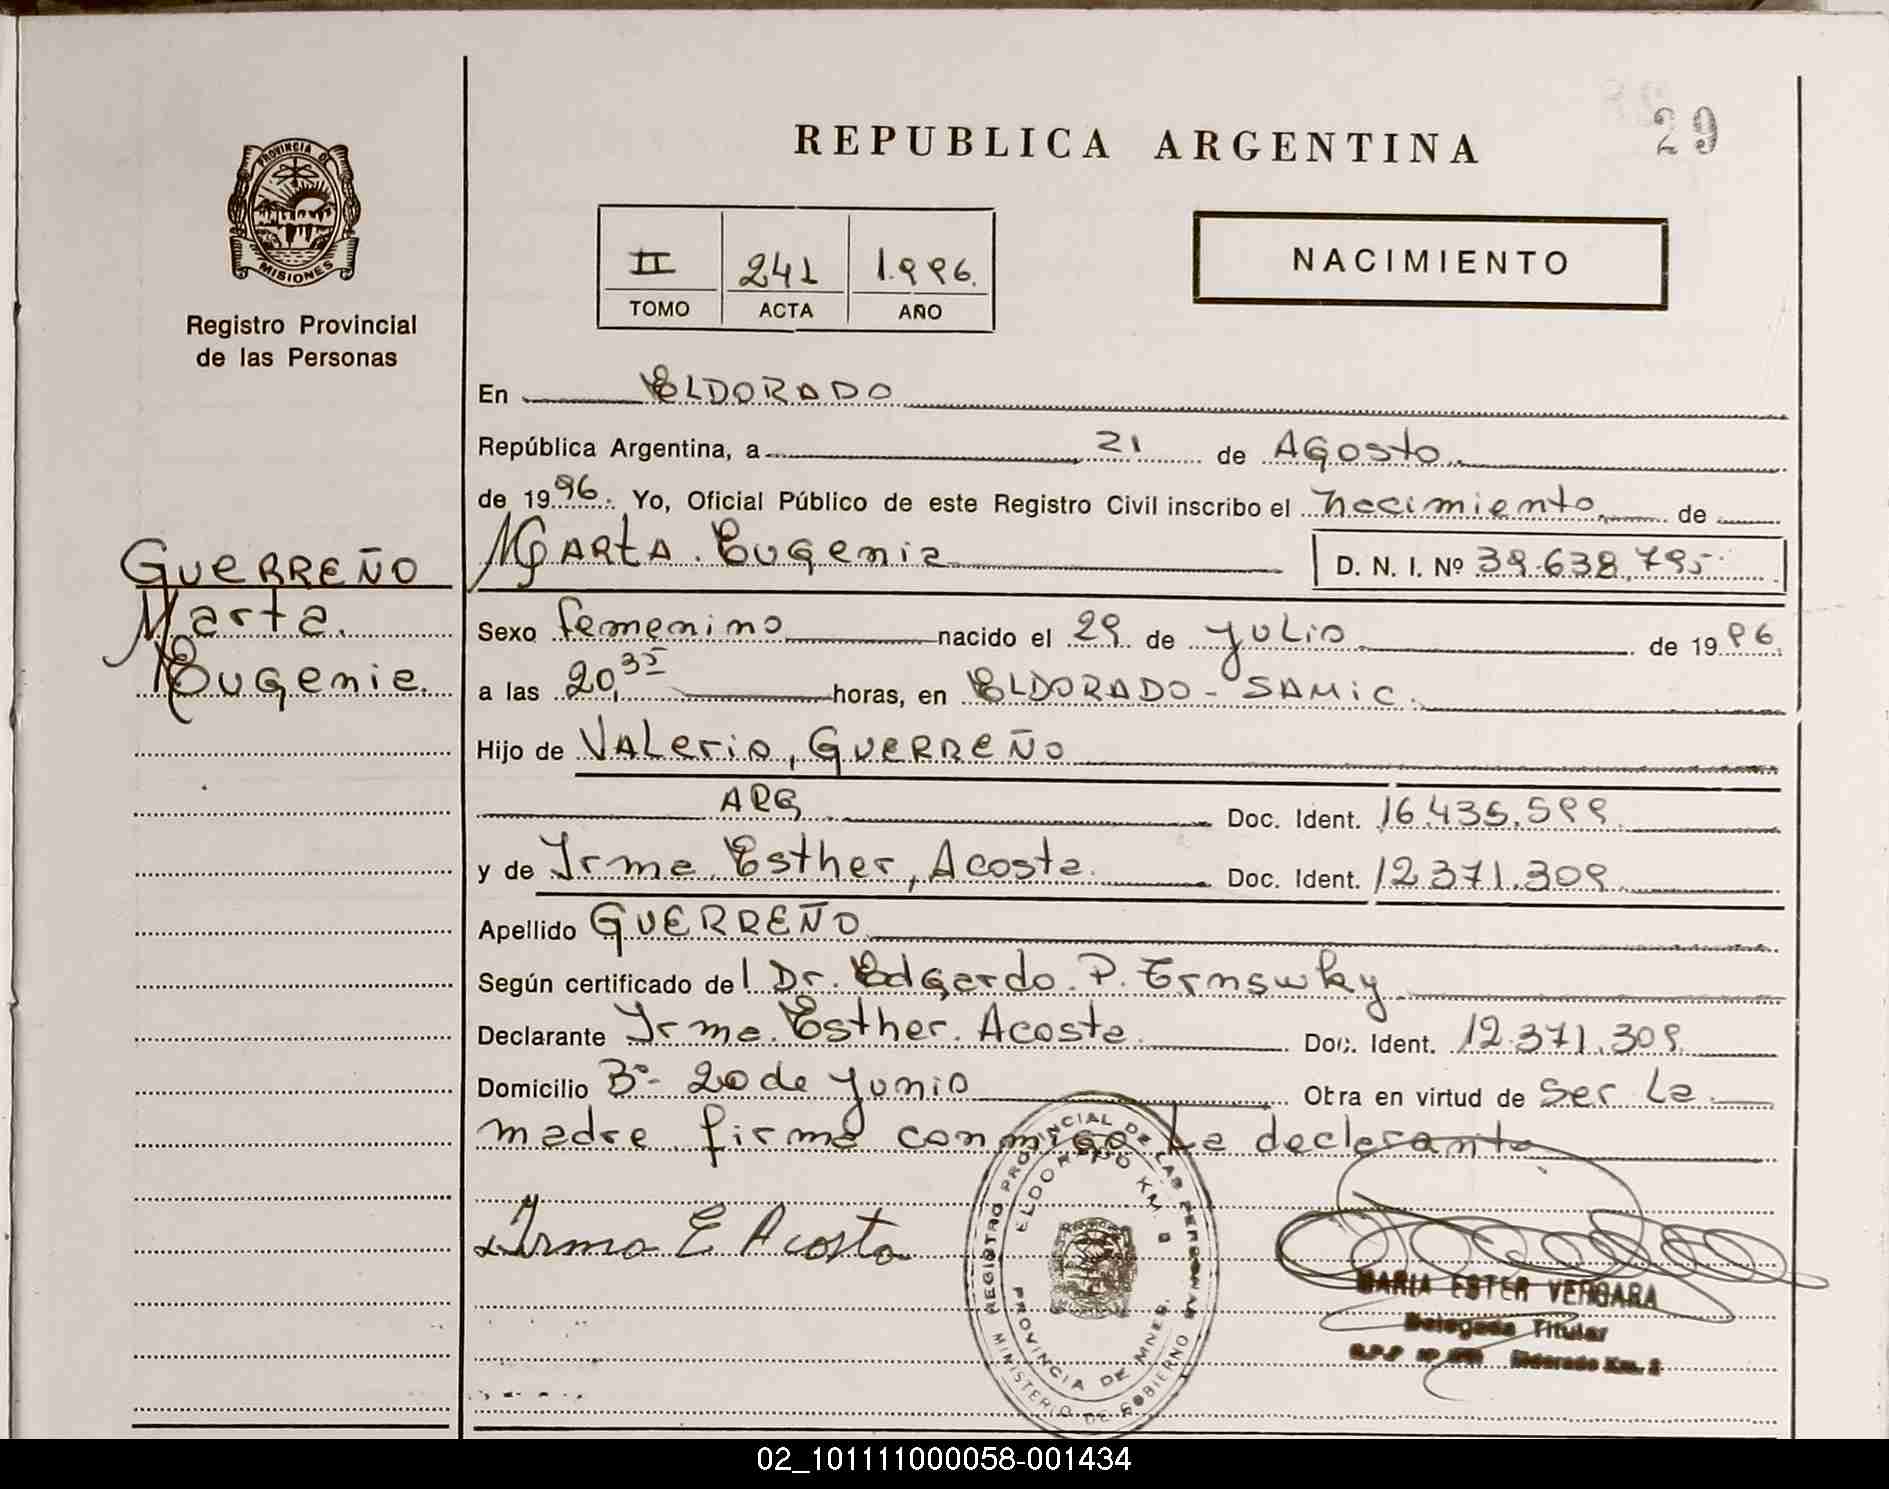 29
REPUBLICA ARGENTINA
PROVINCIA DE
MISIONES
Registro Provincial
de las Personas
II 241 1.996.
TOMO ACTA AÑO
NACIMIENTO
En ELDORADO
República Argentina, a 21 de Agosto
de 1996. Yo, Oficial Público de este Registro Civil inscribo el nacimiento de
GUERREÑO
Marta
Eugenia
MARTA Eugenia D. N. I. Nº 39.638.795
Sexo femenino nacido el 29 de Julio de 1996.
a las 20,35 horas, en ELDORADO - SAMIC.
Hijo de VALerio, GUERREÑO
ARG Doc. Ident. 16.435.599
y de Irma Esther, Acosta Doc. Ident. 12.371.309
Apellido GUERREÑO
Según certificado del Dr. Edgardo P.
Declarante Irma Esther Acosta Doc. Ident. 12.371.309
Domicilio Bº- 20 de Junio Obra en virtud de ser la
madre firma conmigo la declarante
Irma E Acosta
REGISTRO PROVINCIAL DE LAS PERSONAS
ELDORADO KM.
PROVINCIA DE MNES.
MINISTERIO DE GOBIERNO
MARIA ESTER VERGARA
Delegada Titular
Eldorado Km. 2
02_101111000058-001434